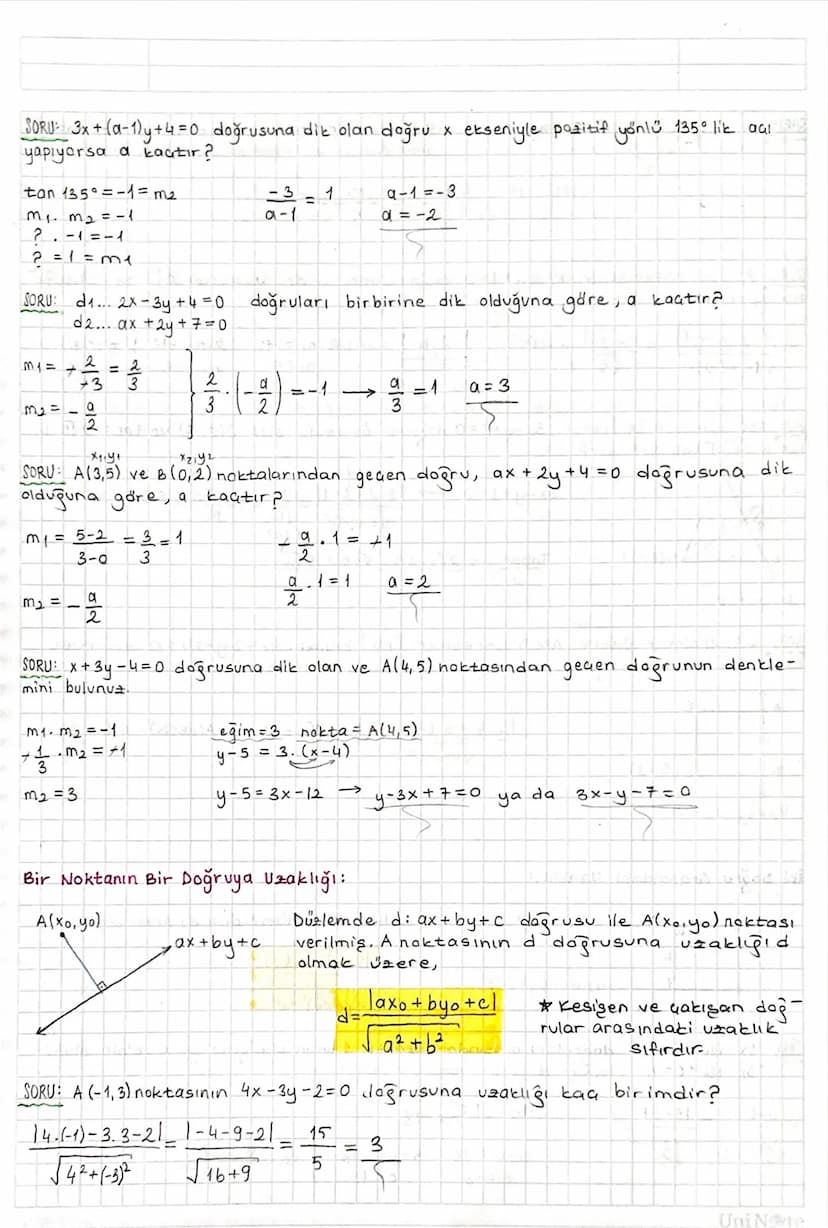 SORU: 3x+(a-1)y+4=0 doğrusuna dik olan doğru x ekseniyle pozitif yönlü 135° lik açı
yapıyorsa a kaçtır?
tan 135° = -1 = m2
m1 . m2 = -1
? . -1 = -1
? = 1 = m1
-3/(a-1) = 1
a-1 = -3
a = -2
SORU: d1... 2x-3y+4=0 doğruları birbirine dik olduğuna göre, a kaçtır?
d2... ax+2y+7=0
m1 = -2/-3 = 2/3
m2 = -a/2
2/3 . (-a/2) = -1 → a/3 = 1 a = 3
x1,y1 x2,y2
SORU: A(3,5) ve B(0,2) noktalarından geçen doğru, ax+2y+4=0 doğrusuna dik
olduğuna göre, a kaçtır?
m1 = (5-2)/(3-0) = 3/3 = 1
m2 = -a/2
-a/2 . 1 = -1
a/2 . 1 = 1 a = 2
SORU: x+3y-4=0 doğrusuna dik olan ve A(4,5) noktasından geçen doğrunun denkle-
mini bulunuz.
m1 . m2 = -1
-1/3 . m2 = -1
m2 = 3
eğim=3 nokta= A(4,5)
y-5 = 3.(x-4)
y-5 = 3x-12 → y-3x+7=0 ya da 3x-y-7=0
Bir Noktanın Bir Doğruya Uzaklığı:
A(x0,y0)
ax+by+c
Düzlemde d: ax+by+c doğrusu ile A(x0,y0) noktası
verilmiş. A noktasının d doğrusuna uzaklığı d
olmak üzere,
d = |ax0+by0+c|/√(a²+b²)
★ Kesişen ve çakışan doğ-
rular arasındaki uzaklık
sıfırdır.
SORU: A(-1,3) noktasının 4x-3y-2=0 doğrusuna uzaklığı kaç birimdir?
|4.(-1)-3.3-2|/√(4²+(-3)²) = |-4-9-2|/√(16+9) = 15/5 = 3
UniNote